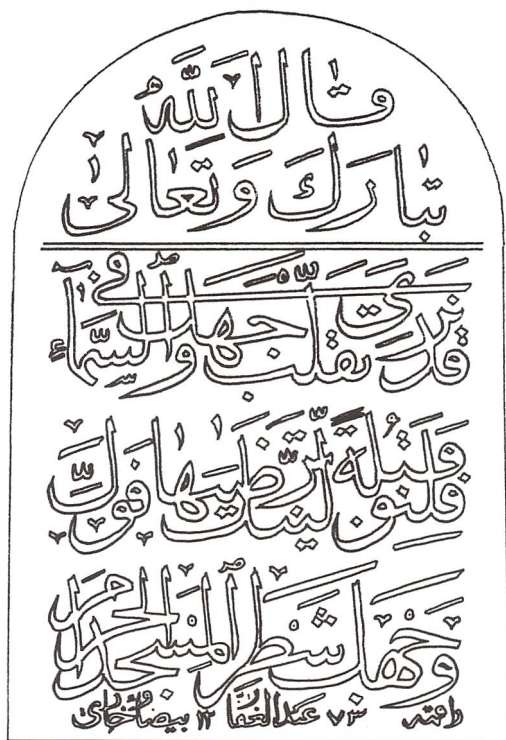 قَالَ اللّٰهُ
تَبَارَكَ وَتَعَالٰى
قَدْ نَرٰى تَقَلُّبَ وَجْهِكَ فِي السَّمَآءِ
فَلَنُوَلِّيَنَّكَ قِبْلَةً تَرْضٰيهَا فَوَلِّ
وَجْهَكَ شَطْرَ الْمَسْجِدِ الْحَرَامِ
راقمه ٧٣ عبد الغفار ١٢